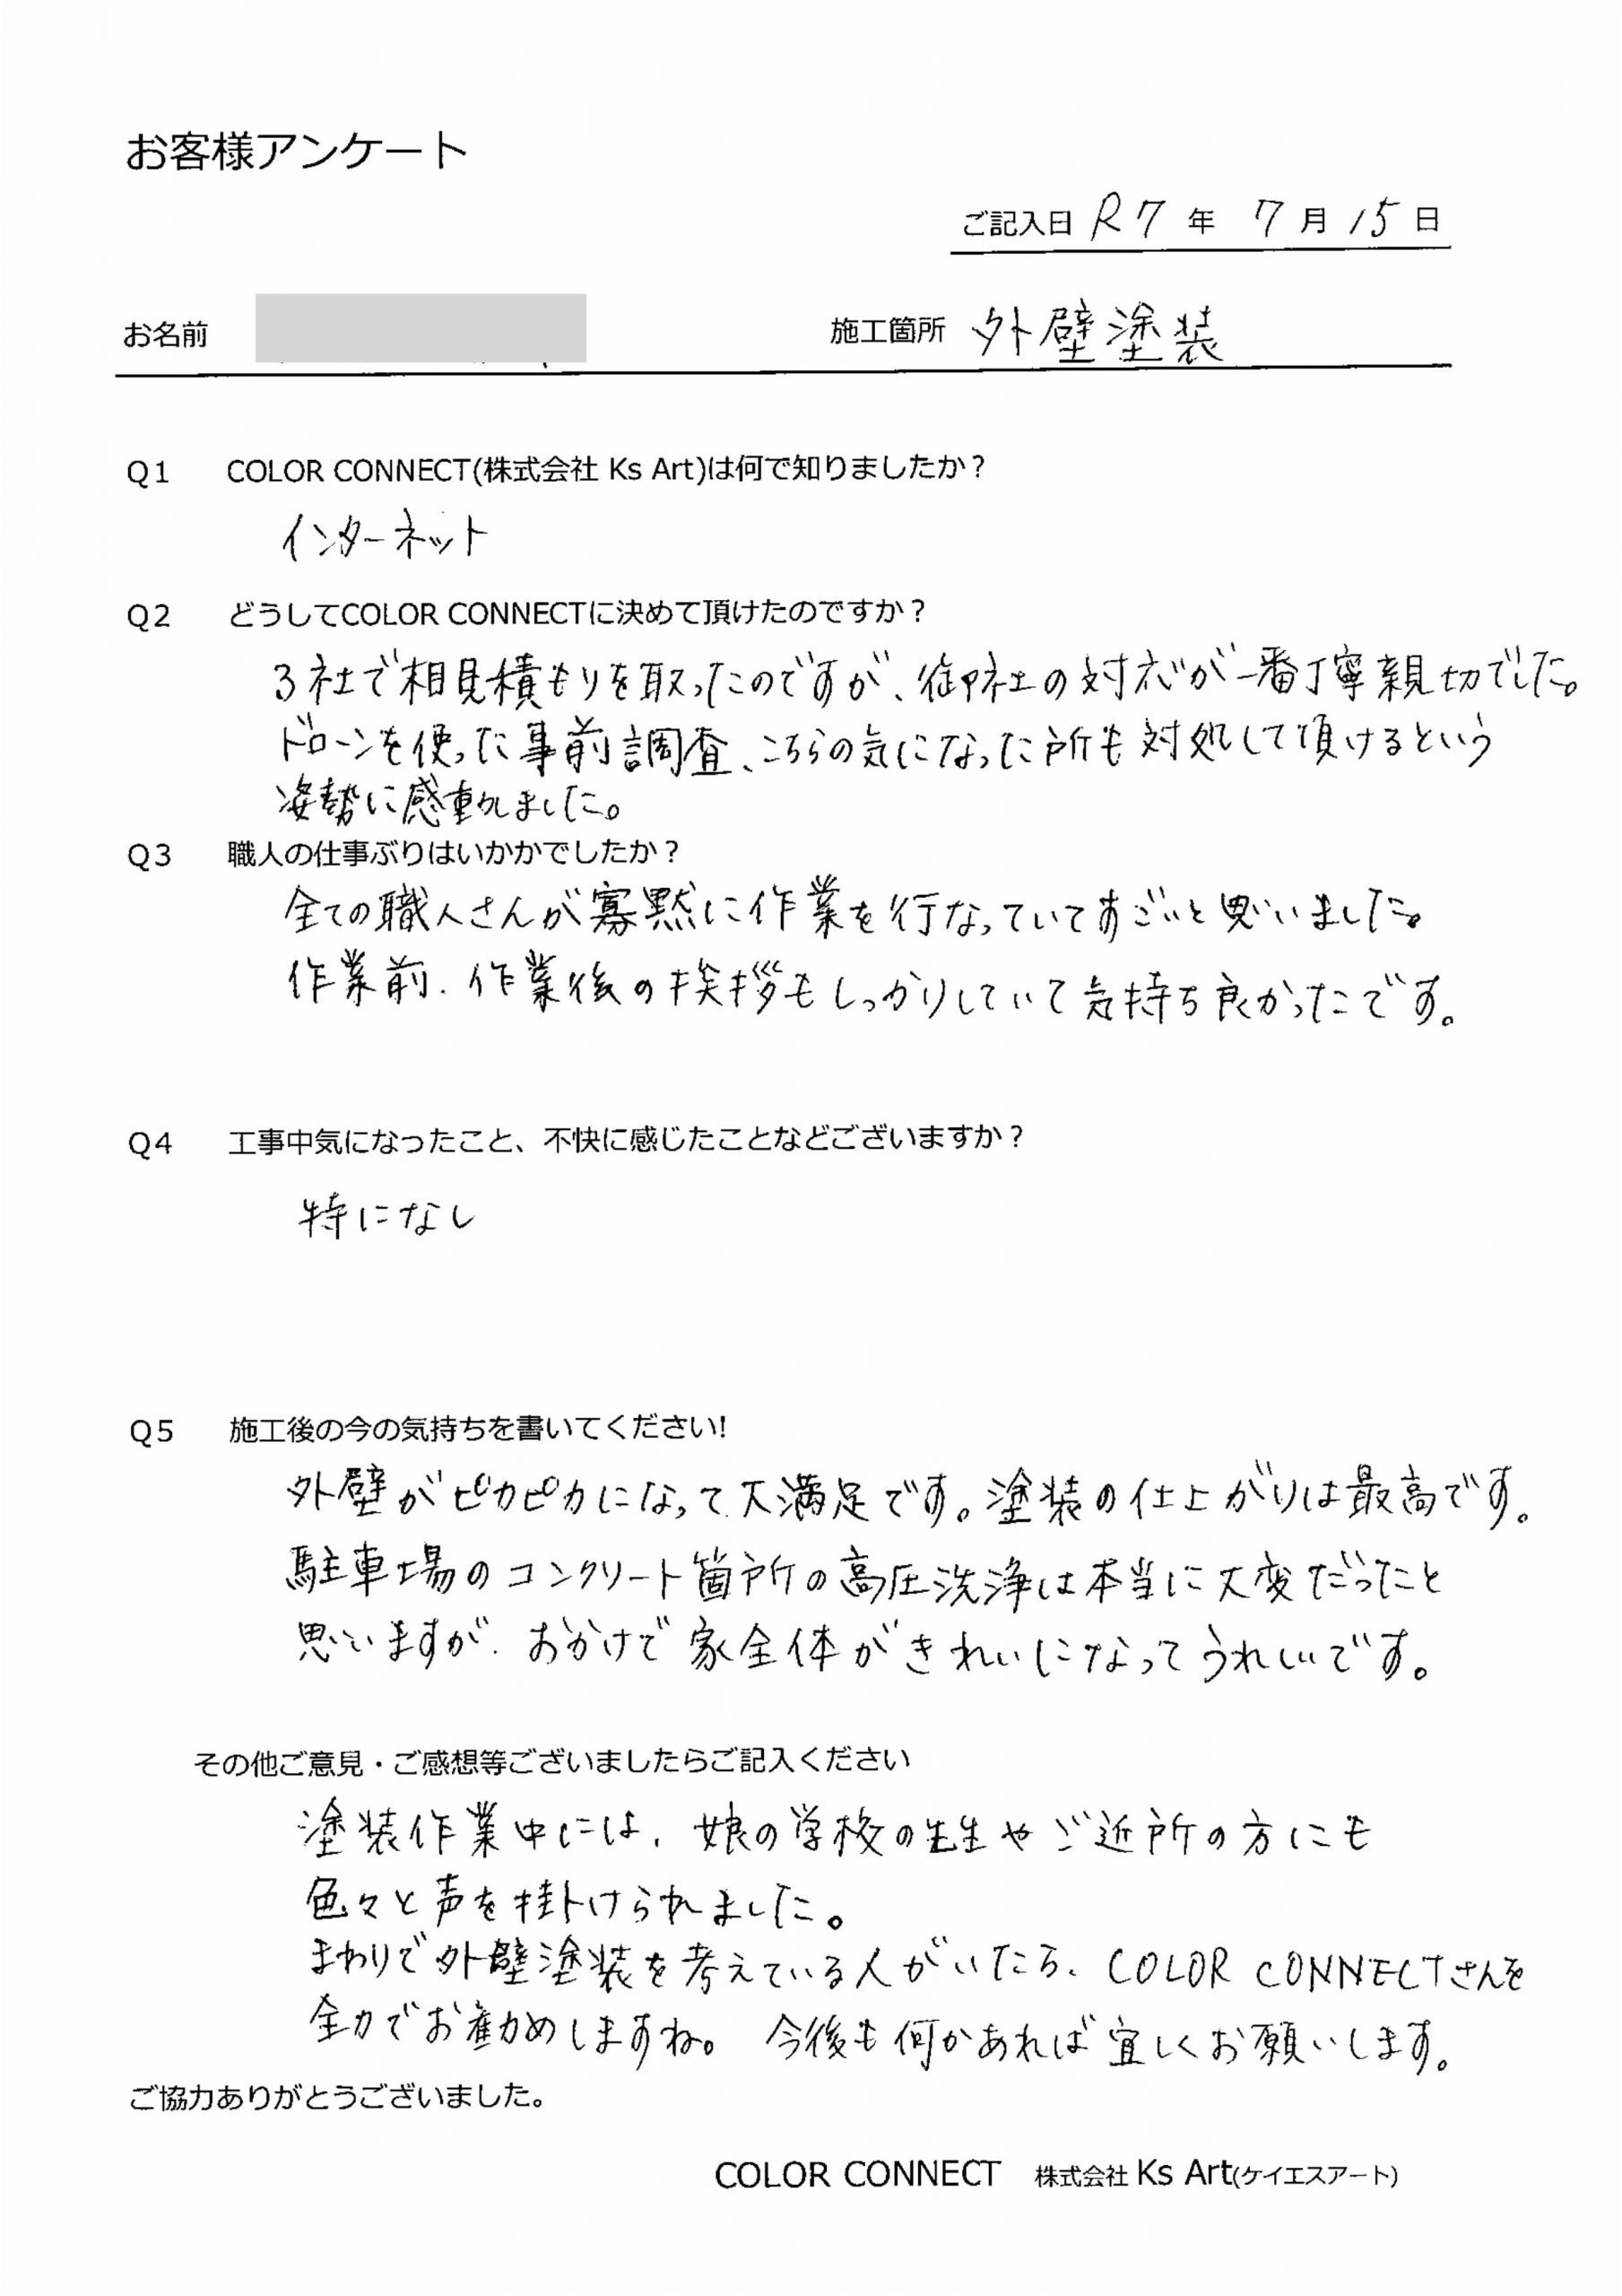 お客様アンケート
ご記入日 R7 年 7 月 15 日
お名前 施工箇所 外壁塗装
Q1 COLOR CONNECT(株式会社 Ks Art)は何で知りましたか？
インターネット
Q2 どうしてCOLOR CONNECTに決めて頂けたのですか？
3社で相見積もりを取ったのですが、御社の対応が一番丁寧親切でした。
ドローンを使った事前調査、こちらの気になった所も対処して頂けるという
姿勢に感動しました。
Q3 職人の仕事ぶりはいかかでしたか？
全ての職人さんが寡黙に作業を行なっていてすごいと思いました。
作業前、作業後の挨拶もしっかりしていて気持ち良かったです。
Q4 工事中気になったこと、不快に感じたことなどございますか？
特になし
Q5 施工後の今の気持ちを書いてください!
外壁がピカピカになって大満足です。塗装の仕上がりは最高です。
駐車場のコンクリート箇所の高圧洗浄は本当に大変だったと
思いますが、おかげで家全体がきれいになってうれしいです。
その他ご意見・ご感想等ございましたらご記入ください
塗装作業中には、娘の学校の先生やご近所の方にも
色々と声を掛けられました。
まわりで外壁塗装を考えている人がいたら、COLOR CONNECTさんを
全力でお勧めしますね。 今後も何かあれば宜しくお願いします。
ご協力ありがとうございました。
COLOR CONNECT 株式会社 Ks Art(ケイエスアート)